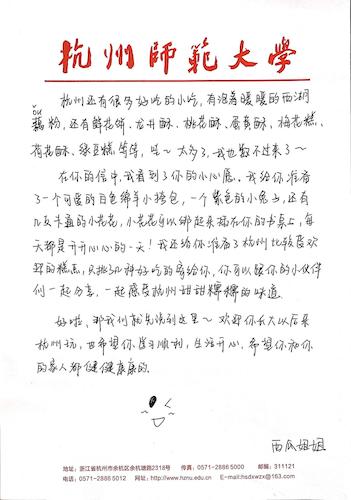 杭州師範大學
杭州还有很多好吃的小吃，有泡着暖暖的西湖
ǒu
藕粉，还有鲜花饼、龙井酥、桃花酥、蛋黄酥、梅花糕、
荷花酥、绿豆糕等等，哇～太多了，我也数不过来了～
在你的信中，我看到了你的小心愿，我给你准备
了一个可爱的白色绵羊小挎包，一个紫色的小兔子，还有
几支卡通的小花花，小花花可以绑起来插在你的书桌上，每
天都是开开心心的一天！我还给你准备了杭州比较受欢
迎的糕点，只挑了几种好吃的寄给你，你可以跟你的小伙伴
们一起分享，一起感受杭州甜甜糯糯的味道
好啦，那我们就先说到这里～欢迎你长大以后来
杭州玩，也希望你学习顺利，生活开心，希望你和你
的家人都健健康康的
西瓜姐姐
地址：浙江省杭州市余杭区余杭塘路2318号 传真：0571-2886 5000 邮编：311121
电话：0571-2886 5012 网址：http://www.hznu.edu.cn E-mail:hsdxwzx@163.com